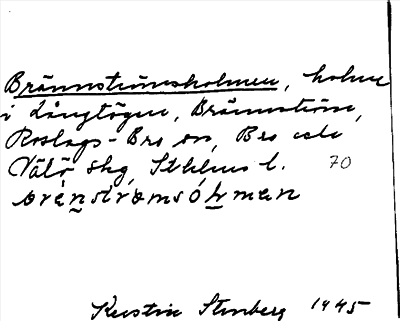 Brännströmsholmen, holme
i Långtögen, Brännström,
Roslags-Bro sn, Bro och
Vätö skg, Sthlms l. 70
brä́nströmsóhmen
Kerstin Stenberg 1945